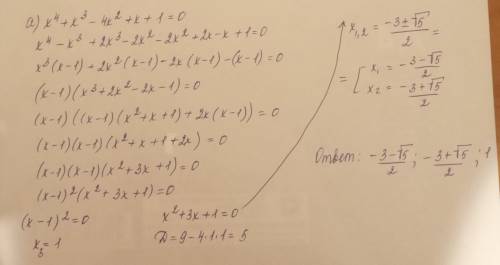 а) x⁴ + x³ − 4x² + x + 1 = 0
x⁴ − x³ + 2x³ − 2x² − 2x² + 2x − x + 1 = 0
x³(x−1) + 2x²(x−1) − 2x(x−1) − (x−1) = 0
(x−1)(x³ + 2x² − 2x − 1) = 0
(x−1)((x−1)(x² + x + 1) + 2x(x−1)) = 0
(x−1)(x−1)(x² + x + 1 + 2x) = 0
(x−1)(x−1)(x² + 3x + 1) = 0
(x−1)²(x² + 3x + 1) = 0
(x−1)² = 0 x² + 3x + 1 = 0
x₃ = 1 D = 9 − 4·1·1 = 5
x₁,₂ = (−3 ± √5)/2 =
= [ x₁ = (−3 − √5)/2
x₂ = (−3 + √5)/2
Ответ: (−3 − √5)/2 ; (−3 + √5)/2 ; 1